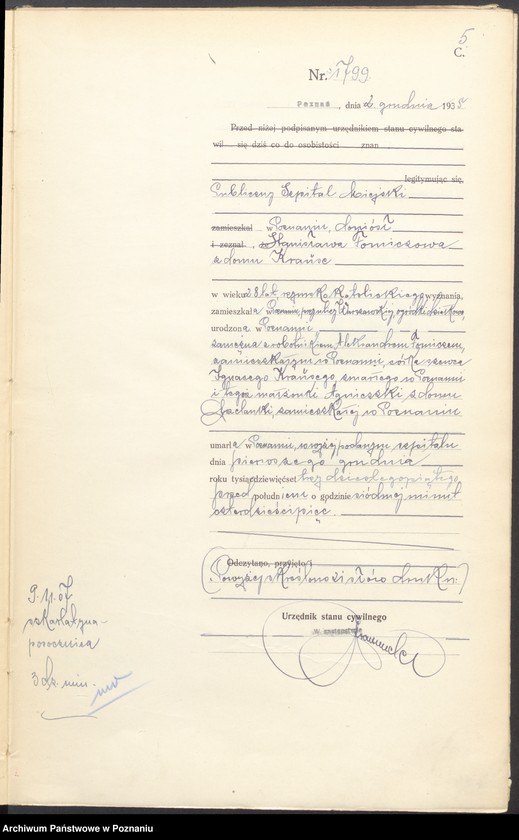 5
C.
Nr. 1799
Poznań, dnia 2 grudnia 1935
Przed niżej podpisanym urzędnikiem stanu cywilnego sta-
wił się dziś co do osobistości znan
legitymując się,
Publiczny Szpital Miejski
zamieszkał w Poznaniu, doniósł
i zeznał, że Stanisława Tomiczowa
z domu Krause
w wieku 28 lat, rzymsko katolickiego wyznania,
zamieszkała w Poznaniu, przy ulicy Warszawskiej
urodzona w Poznaniu
zamężna z robotnikiem Aleksandrem Tomiczem,
zamieszkałym w Poznaniu, córka szewca
Ignacego Krausego, zmarłego w Poznaniu
i tegoż małżonki Agnieszki z domu
zamieszkałej w Poznaniu
umarła w Poznaniu, w wyżej podanym szpitalu
dnia pierwszego grudnia
roku tysiąc dziewięćset trzydziestego piątego
przed południem o godzinie siódmej minut
czterdzieści pięć.
Odczytano, przyjęto i
(Powyżej skreślono słów druku.)
Urzędnik stanu cywilnego
w zastępstwie
szkarlatyna
Archiwum Państwowe w Poznaniu